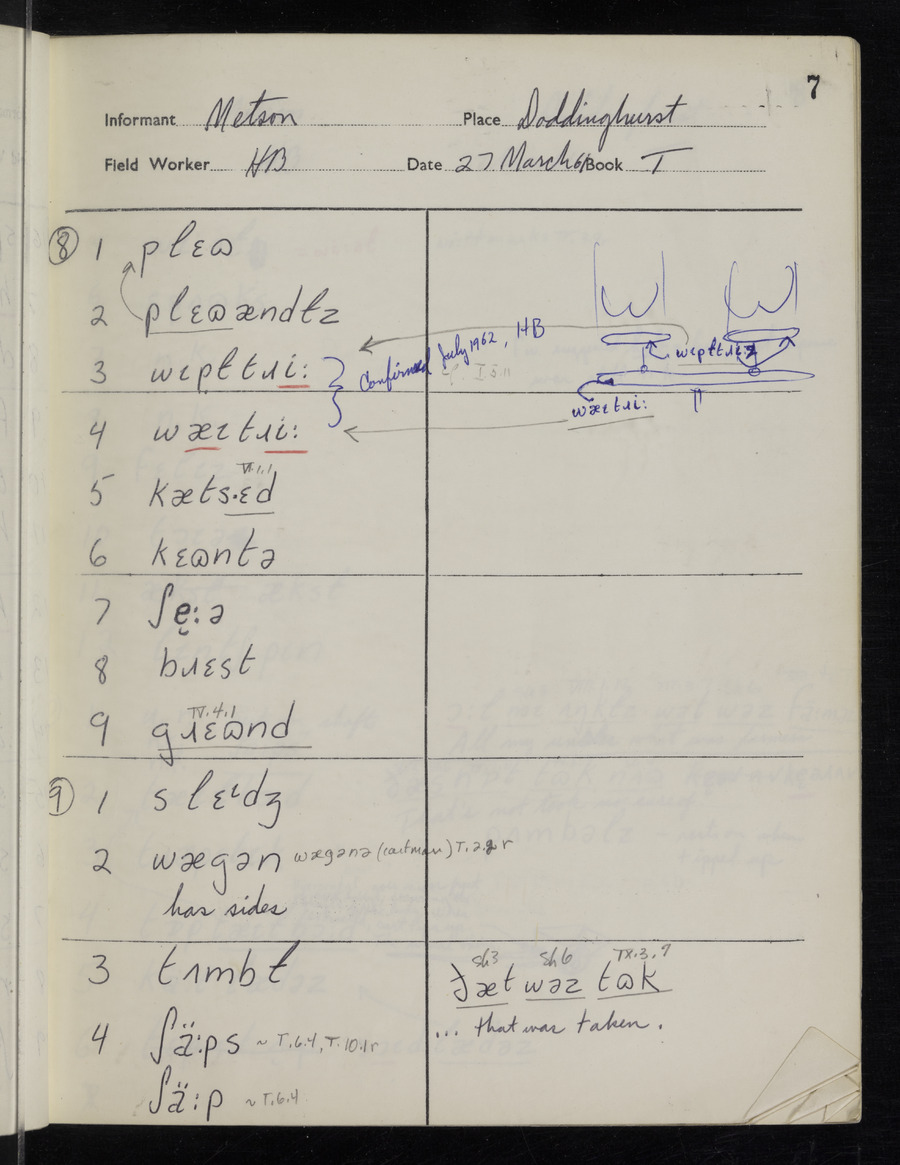 7
Informant Metson Place Doddinghurst
Field Worker HB Date 27 March 61 Book I
⑧ 1 plɛɷ
2 plɛɷændlz
3 wɪpltɹiː
Confirmed July 1962, HB
wɪpltɹiːz
4 wæɪtɹiː
wæɪtɹiː
VI.1.1
5 kæts·ɛd
6 kɛɷntə
7 ʃe̞ːə
8 bɹɛst
IV.4.1
9 gɹɛɷnd
⑨ 1 slɛɪdʒ
2 wægən wægənə (cartman) I.2.2r
has sides
3 tʌmbl
Sh3 Sh6 IX.3.7
ðæt wəz tɷk
4 ʃä:ps ~ I.6.4, I.10.1r
... that was taken.
ʃä:p ~ I.6.4